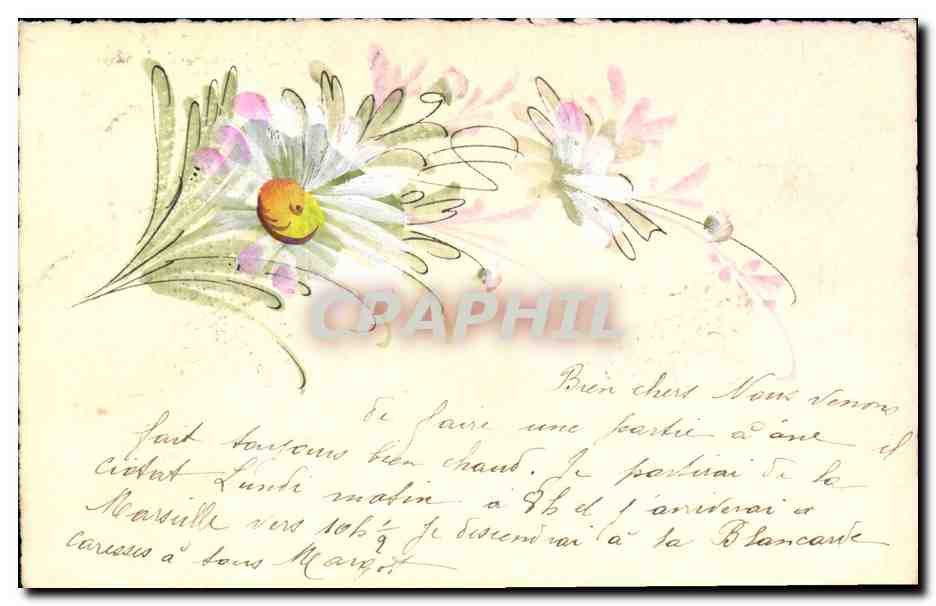 CPAPHIL
Bien chers Nous venons
de faire une partie à âne il
fait toujours bien chaud. Je partirai de la
Ciotat Lundi matin à 8h et j'arriverai a
Marseille vers 10h ½ Je descendrai à la Blancarde
caresses à tous Margot